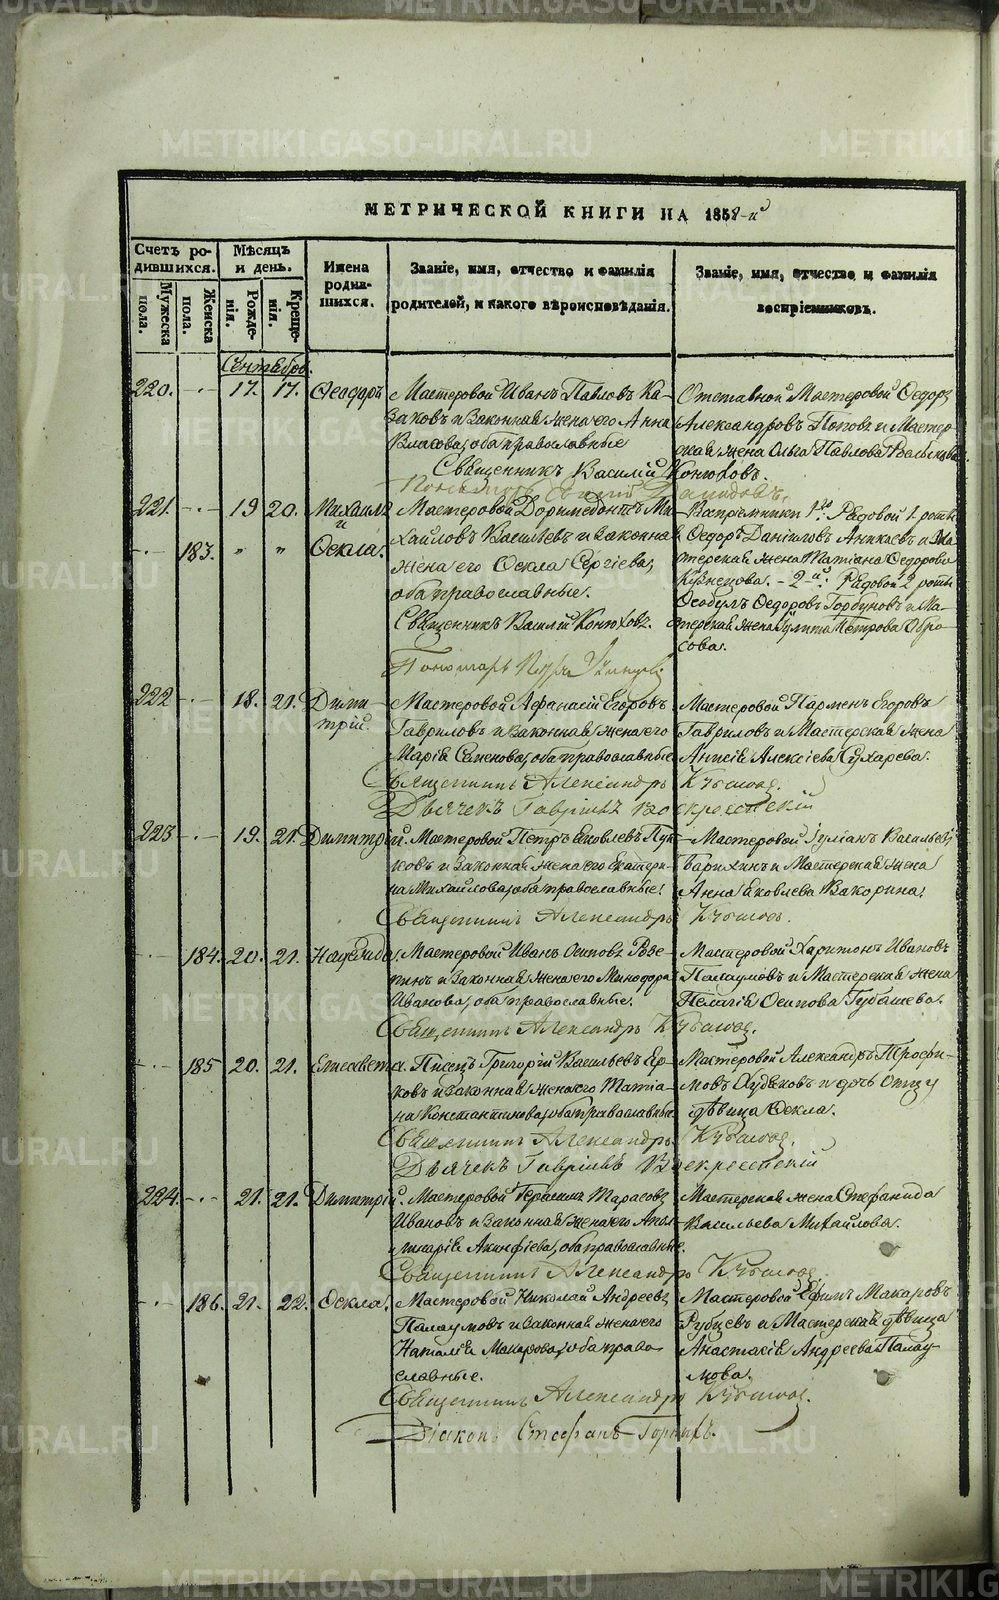 METRIKI.GASO-URAL.RU
МЕТРИЧЕСКОЙ КНИГИ НА 1858-й
Счетъ родившихся.
Мѣсяцъ и день.
Имена родившихся.
Званіе, имя, отчество и фамилія родителей, и какого вѣроисповѣданія.
Званіе, имя, отчество и фамилія воспріемниковъ.
Мужеска пола.
Женска пола.
Рожденія.
Крещенія.
Сентябрь.
220. 17. 17. Ѳеодоръ
Мастеровой Иванъ Павловъ Ка-
заковъ и законная жена его Анна
Власова, оба православные
Священникъ Василій Конюховъ.
Отставной Мастеровой Ѳедоръ
Александровъ Поповъ и Мастер-
ская жена Ольга Павлова
221. 19 20. Михаилъ
и
183. " " Ѳекла.
Мастеровой Дормедонтъ Ми-
хайловъ Васильевъ и законная
жена его Ѳекла Сергіева,
оба православные.
Священникъ Василій Конюховъ.
Пономарь Петръ
Воспріемники 1-го: Рядовой 1 роты
Ѳедоръ Даниловъ Аникаевъ и Ма-
терская жена Татіана Ѳедорова
Кузнецова. - 2-й: Рядовой 2 роты
Ѳедоровъ Горбуновъ и Ма-
терская жена Петрова Обро-
сова.
222 18. 21. Дими-
трій.
Мастеровой Аѳанасій Егоровъ
Гавриловъ и законная жена его
Марія Семенова, оба православные
Священникъ Александръ
Дьячекъ Гавріилъ Воскресенскій
Мастеровой Парменъ Егоровъ
Гавриловъ и Мастерская жена
Анисія Алексіева Сухарева.
223 19. 21. Димитрій.
Мастеровой Петръ Яковлевъ
ковъ и законная жена его Екатери-
на Михайлова, оба православные.
Священникъ Александръ
Мастеровой Іуліанъ Васильевъ
Барихинъ и Мастерская жена
Анна Яковлева Вакорина.
184. 20. 21. Надежда.
Мастеровой Иванъ Осиповъ
и законная жена его Минодора
Иванова, оба православные.
Священникъ Александръ
Мастеровой Харитонъ Ивановъ
Палаумовъ и Мастерская жена
Пелагія Осипова Губашева.
185 20. 21. Елисавета.
Писецъ Григорій Васильевъ Ер-
ковъ и законная жена его Татіа-
на Константинова, оба православные
Священникъ Александръ
Дьячекъ Гавріилъ Воскресенскій
Мастеровой Александръ Трофи-
мовъ Худяковъ и дочь
дѣвица Ѳекла.
224. 21. 21. Димитрій.
Мастеровой Герасимъ Тарасовъ
Ивановъ и законная жена его Апол-
линарія Акинфіева, оба православные.
Священникъ Александръ
Мастерская жена Стефанида
Васильева Михайлова.
186. 21. 22. Ѳекла.
Мастеровой Николай Андреевъ
Палаумовъ и законная жена его
Наталія Макарова, оба право-
славные.
Священникъ Александръ
Діаконъ Стефанъ
Мастеровой Ефимъ Макаровъ
Рубцевъ и Мастерская дѣвица
Анастасія Андреева Палау-
мова.